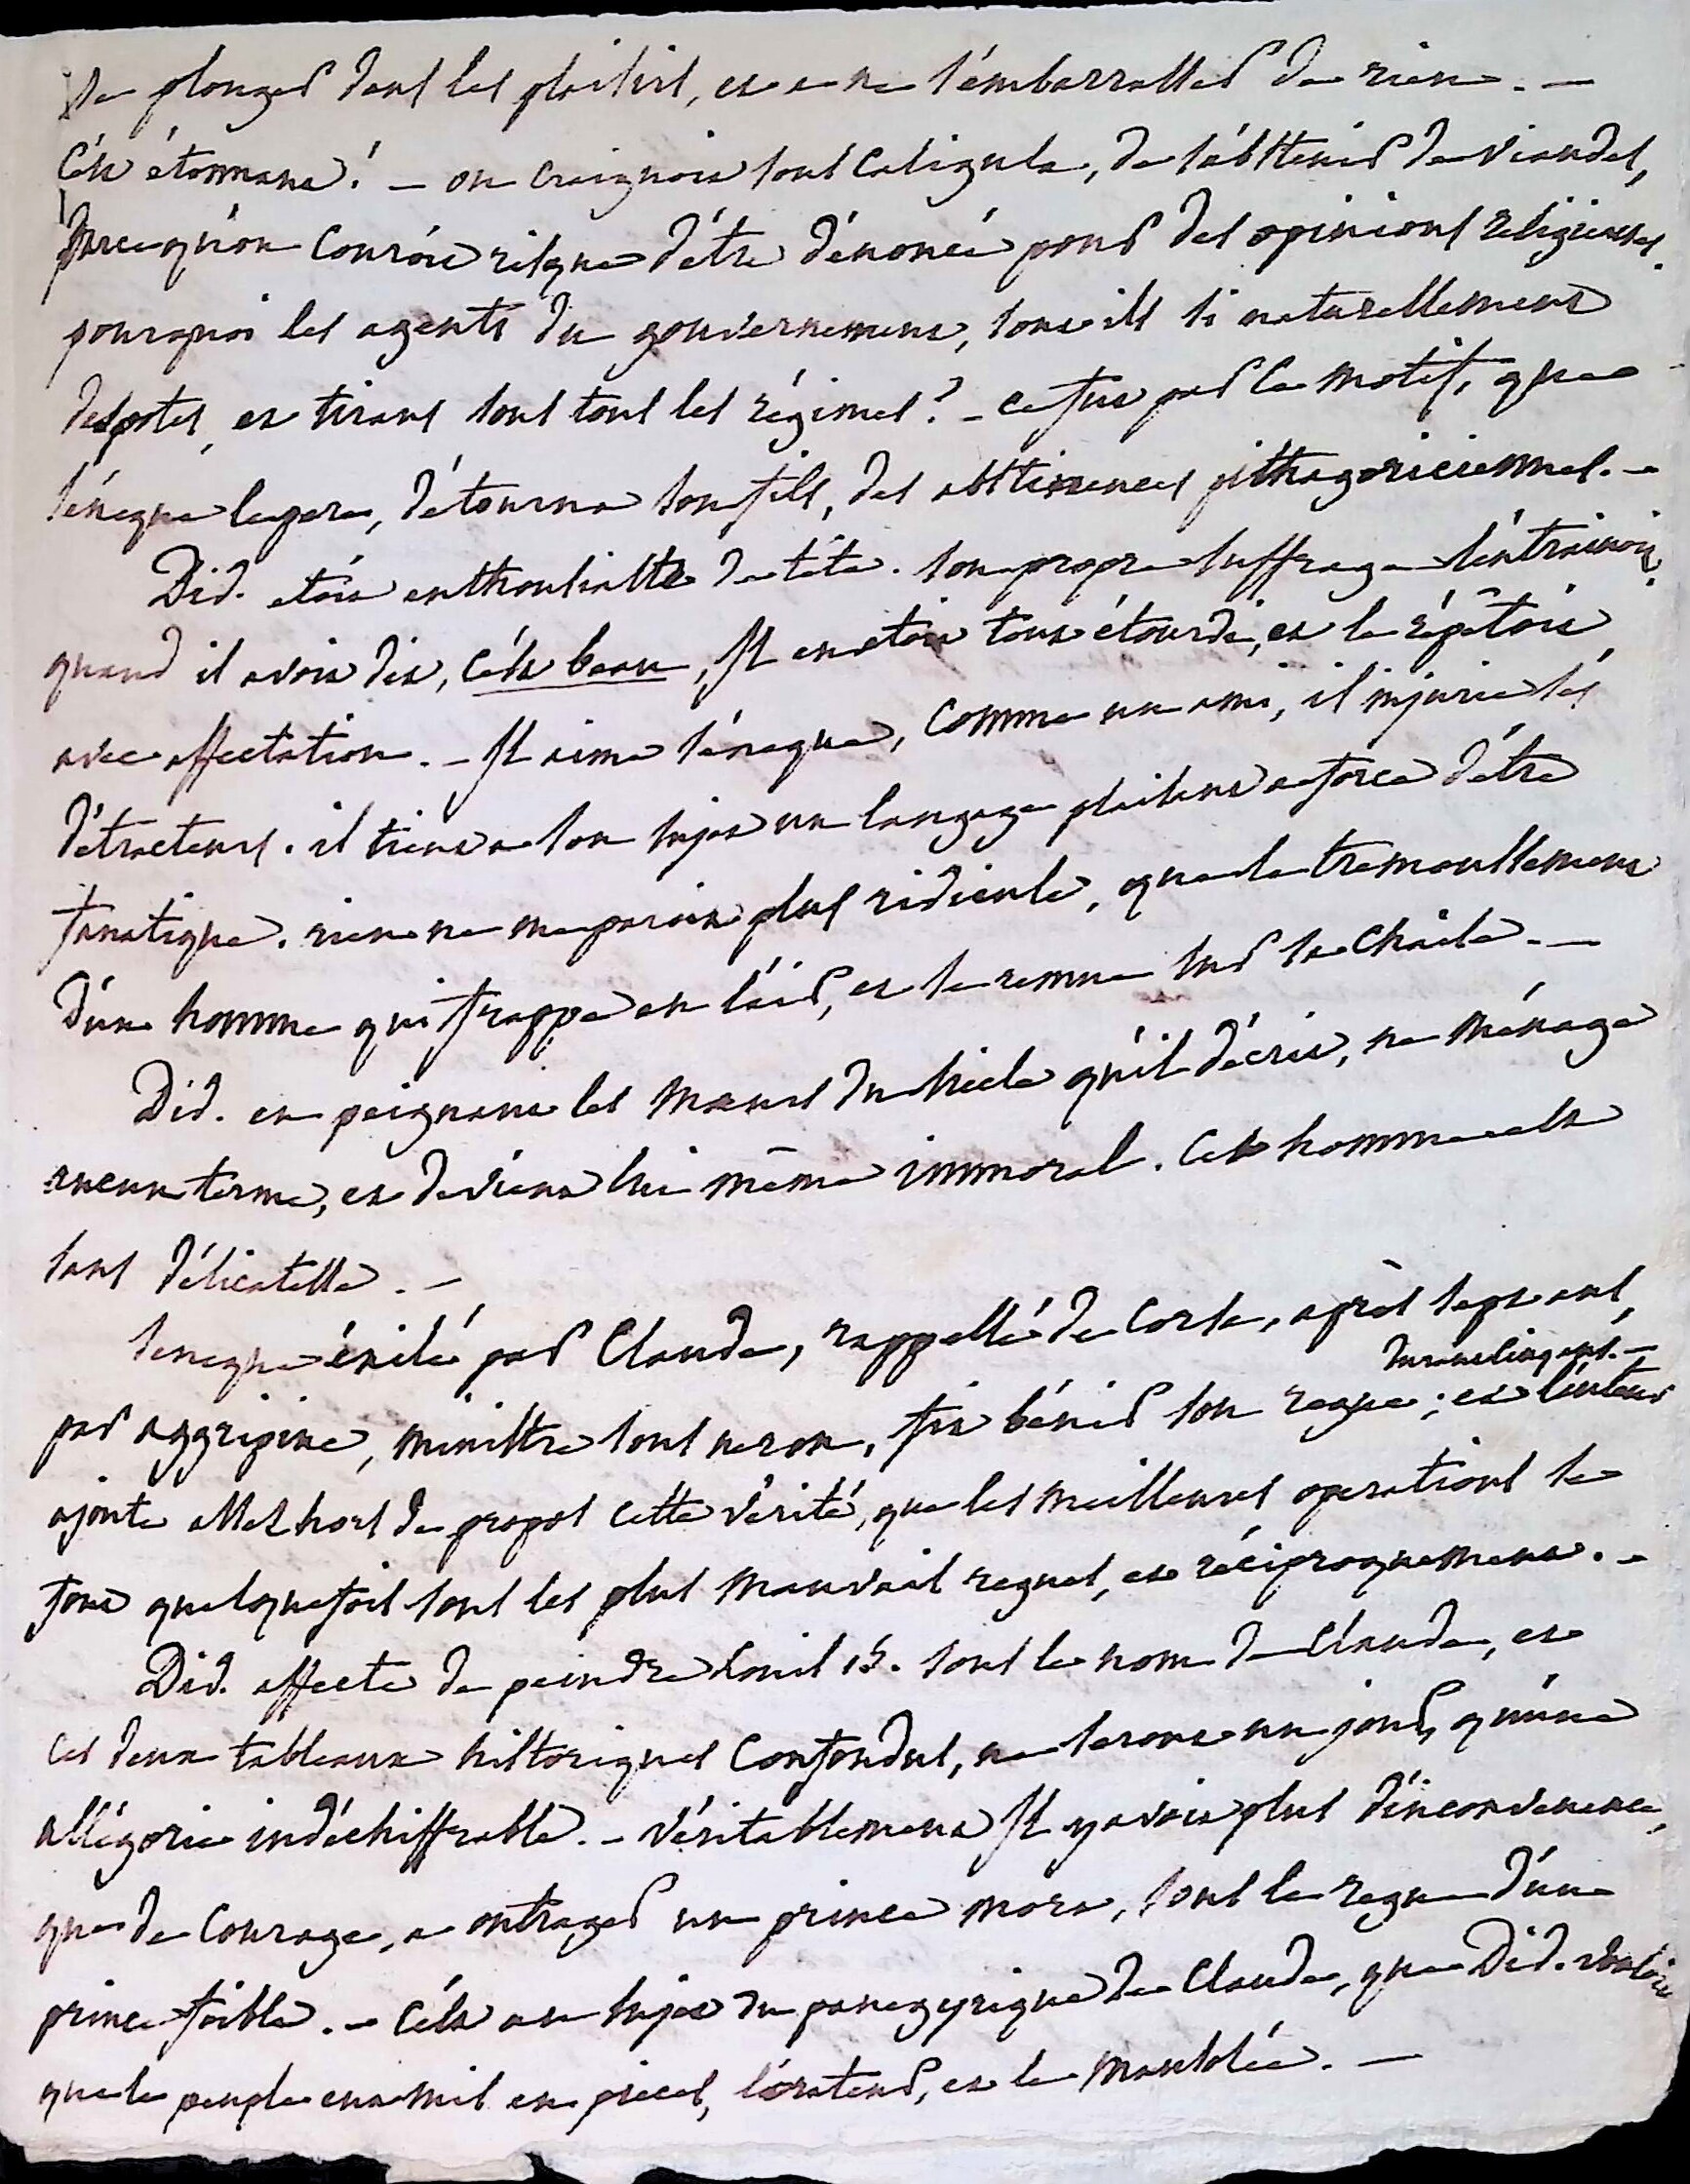 se plonger dans les plaisirs, et ne s'embarrasser de rien. —
C'est étonnant! — on craignoit sous Caligula, de s'abstenir de viandes,
parcequ'on couroit risque d'être dénoncé pour des opinions religieuses.
pourquoi les agents du gouvernement, sont ils si naturellement
despotes, et tirans sous tous les régimes? — ce fut par ce motif, que
Sénèque le pere, détourna son fils, des abstinences pithagoriciennes. —
Did. etoit enthousiaste de tête. son propre suffrage l'entrainoit.
quand il avoit dit, c'est beau, Il en etoit tout étourdi, et le répétoit,
avec affectation. — Il aime Séneque, comme un ami, il injurie ses
détracteurs. il tient a son sujet un langage plaisant a force d'être
fanatique. rien ne me paroit plus ridicule, que le tremoussement
d'un homme qui frappe en l'air, et se remue sur sa chaise. —
Did. en peignant les mœurs du siecle qu'il décrit, ne ménage
aucun terme, et devient lui même immoral. Cet homme est
sans délicatesse. —
Seneque éxilé par Claude, rappellé de Corse, après sept ans,
par aggripine, ministre sous neron, fit bénir son regne; et l'auteur
durant cinq ans. —
ajoute assez hors de propos cette vérité, que les meilleures operations se
font quelquefois sous les plus mauvais regnes, et réciproquement. —
Did. affecte de peindre Louis 15. sous le nom de Claude, et
ces deux tableaux historiques confondus, ne seront un jour, qu'une
allégorie indéchiffrable. — Véritablement Il y avoit plus d'inconvenance,
que de courage, a outrager un prince mort, sous le regne d'un
prince foible. — C'est au sujet du panegyrique de Claude, que Did.
que le peuple eut mis en pieces, l'orateur, et le mausolée. —